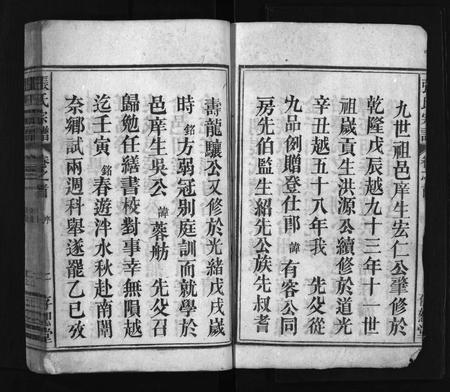 九世祖邑庠生宏仁公肇修於
乾隆戊辰越九十三年十一世
祖歲貢生洪源公續修於道光
辛丑越五十八年我 先父從
九品例贈登仕郎諱有容公同
房先伯監生紹先公族先叔耆
壽龍驤公又修於光緒戊戌歲
時銘方弱冠別庭訓而就學於
邑庠生吳公諱蓉舫 先父召
歸勉任繕書校對事幸無隕越
迄壬寅銘春遊泮水秋赴南闈
奈鄉試兩週科舉遂罷乙巳攷
張氏宗譜 卷之首 序